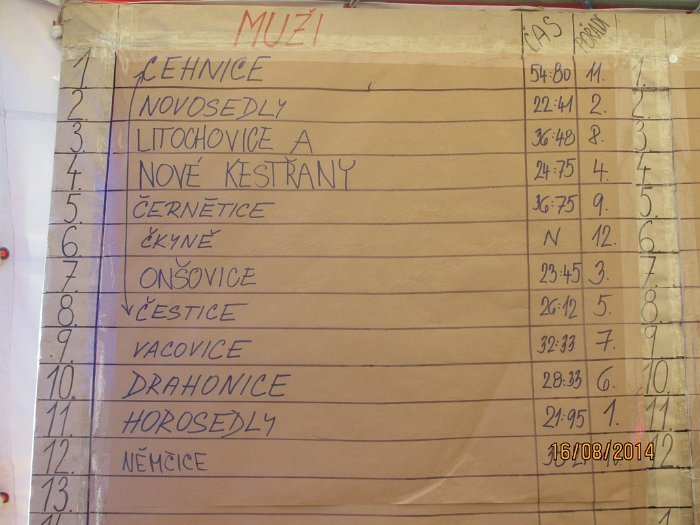 MUŽI ČAS POŘADÍ
1. CEHNICE 54:80 11. 1.
2. NOVOSEDLY 22:41 2. 2.
3. LITOCHOVICE A 36:48 8. 3.
4. NOVÉ KESTŘANY 24:75 4. 4.
5. ČERNĚTICE 36:75 9. 5.
6. ČKYNĚ N 12. 6.
7. ONŠOVICE 23:45 3. 7.
8. ČESTICE 26:12 5. 8.
9. VACOVICE 32:33 7. 9.
10. DRAHONICE 28:33 6. 10.
11. HOROSEDLY 21:95 1. 11.
12. NĚMČICE 12
16/08/2014
13.